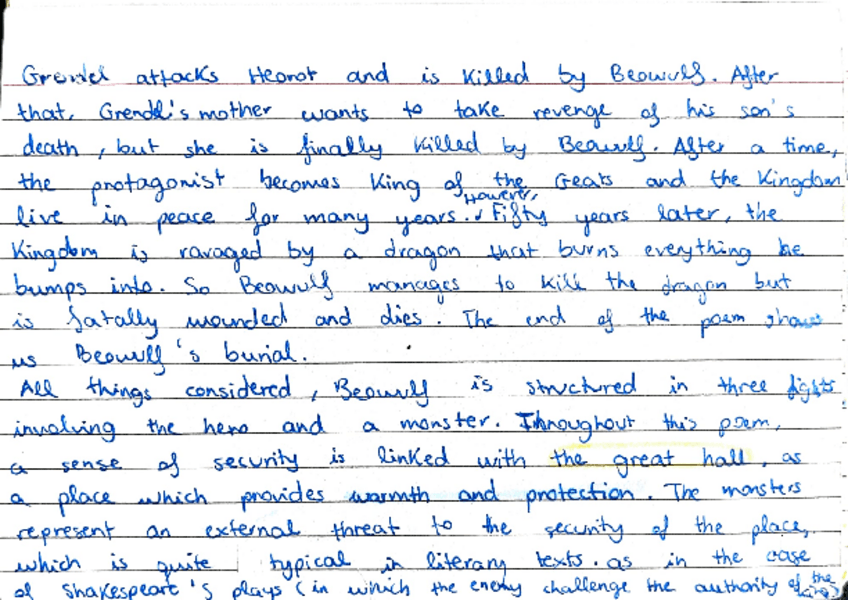 Grendel attacks Heorot and is killed by Beowulf. After
that, Grendel's mother wants to take revenge of his son's
death, but she is finally killed by Beowulf. After a time,
the protagonist becomes King of the Geats and the Kingdom
live in peace for many years. However, Fifty years later, the
Kingdom is ravaged by a dragon that burns everything he
bumps into. So Beowulf manages to kill the dragon but
is fatally wounded and dies. The end of the poem shows
us Beowulf's burial.
All things considered, Beowulf is structured in three fights
involving the hero and a monster. Throughout this poem,
a sense of security is linked with the great hall, as
a place which provides warmth and protection. The monsters
represent an external threat to the security of the place,
which is quite typical in literary texts. as in the case
of Shakespeare's plays (in which the enemy challenge the authority of the king)